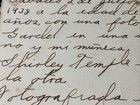 1938 a la edad
años, con una foto
Gardel en una
no y mi muñeca
Shirley Temple
la otra.
fotografiada